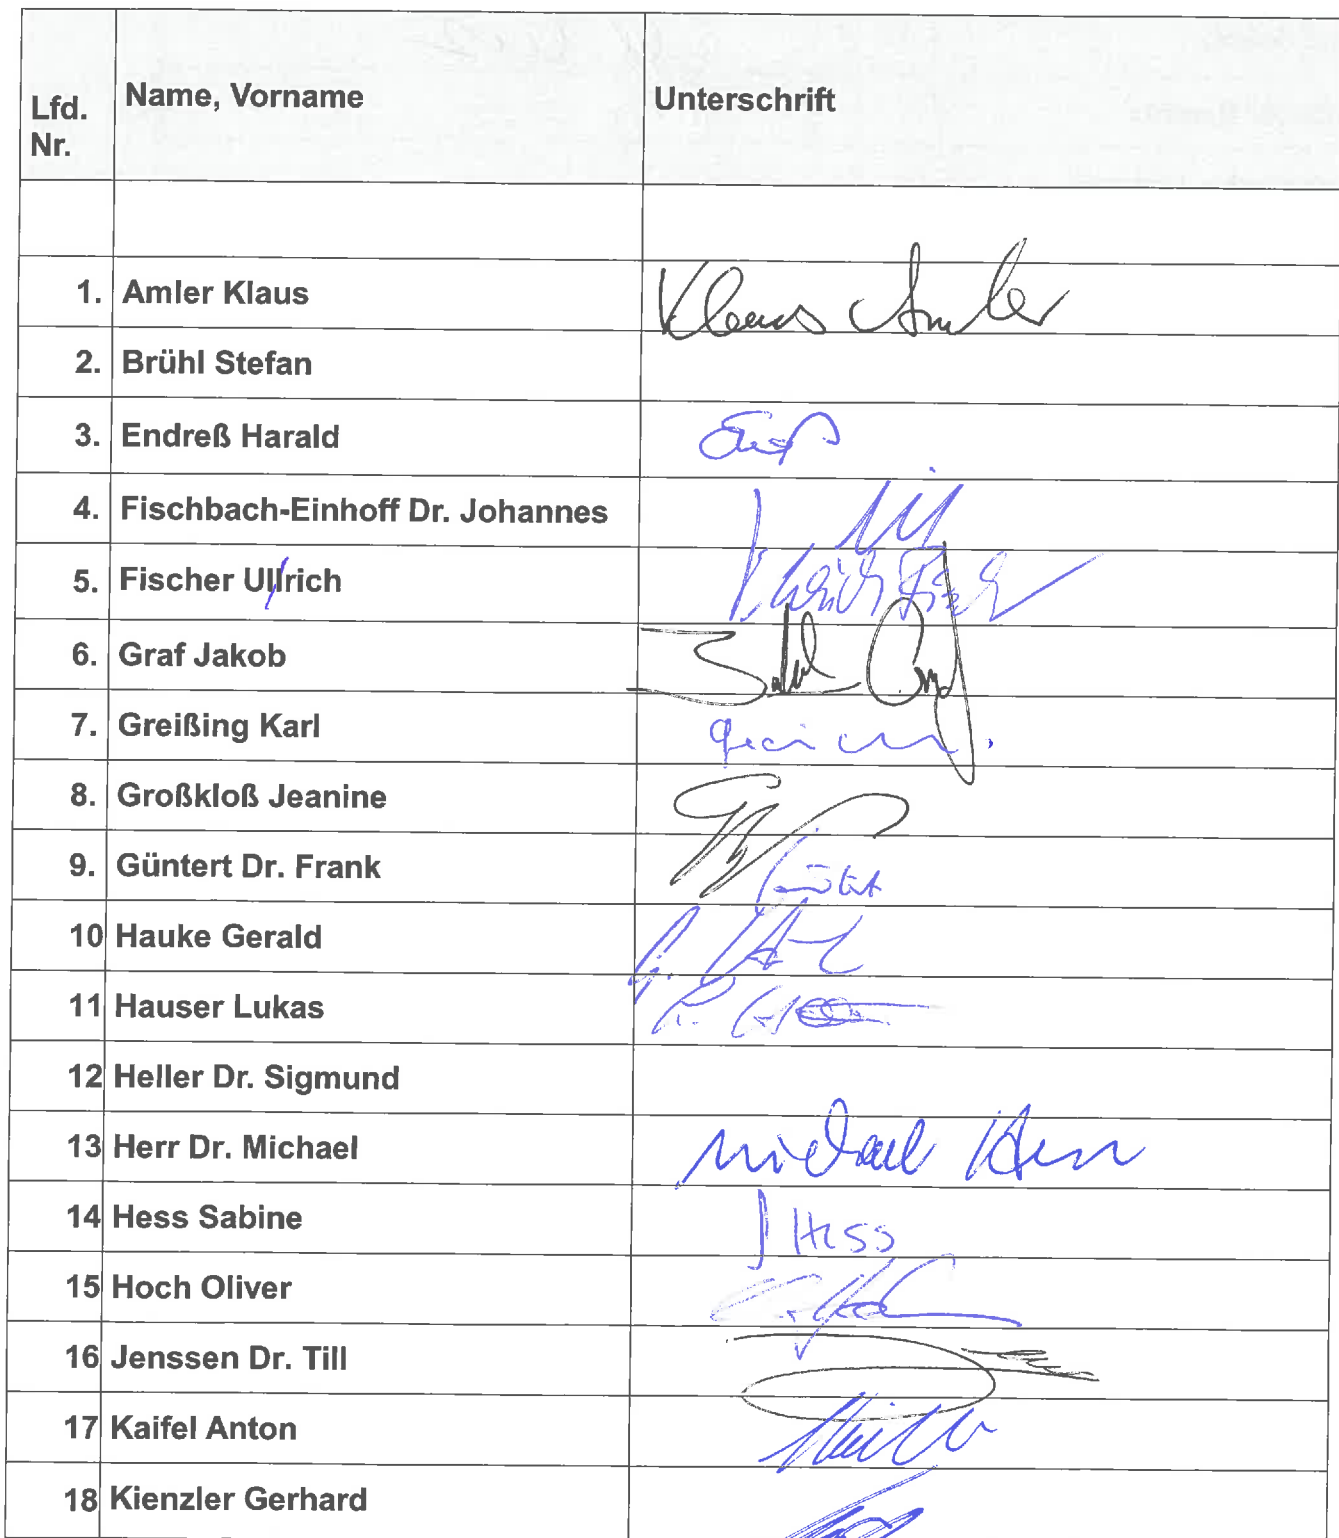 Lfd. Nr. Name, Vorname Unterschrift
1. Amler Klaus Klaus Amler
2. Brühl Stefan
3. Endreß Harald
4. Fischbach-Einhoff Dr. Johannes
5. Fischer Ullrich Ulrich Fischer
6. Graf Jakob Jakob Graf
7. Greißing Karl
8. Großkloß Jeanine
9. Güntert Dr. Frank
10 Hauke Gerald
11 Hauser Lukas
12 Heller Dr. Sigmund
13 Herr Dr. Michael Michael Herr
14 Hess Sabine Hess
15 Hoch Oliver
16 Jenssen Dr. Till
17 Kaifel Anton
18 Kienzler Gerhard